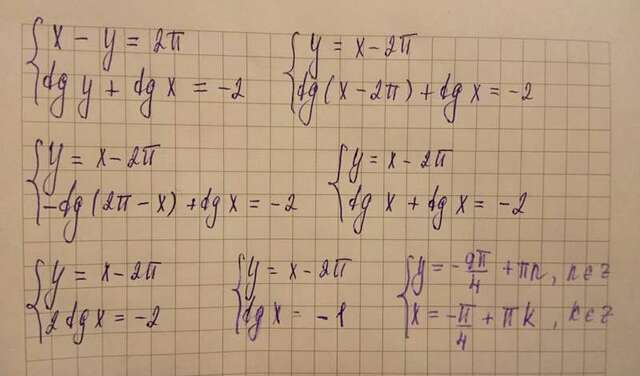 { x - y = 2π
tg y + tg x = -2
{ y = x - 2π
tg (x - 2π) + tg x = -2
{ y = x - 2π
-tg (2π - x) + tg x = -2
{ y = x - 2π
tg x + tg x = -2
{ y = x - 2π
2 tg x = -2
{ y = x - 2π
tg x = -1
{ y = -9π/4 + πn, n ∈ z
x = -π/4 + πk, k ∈ z